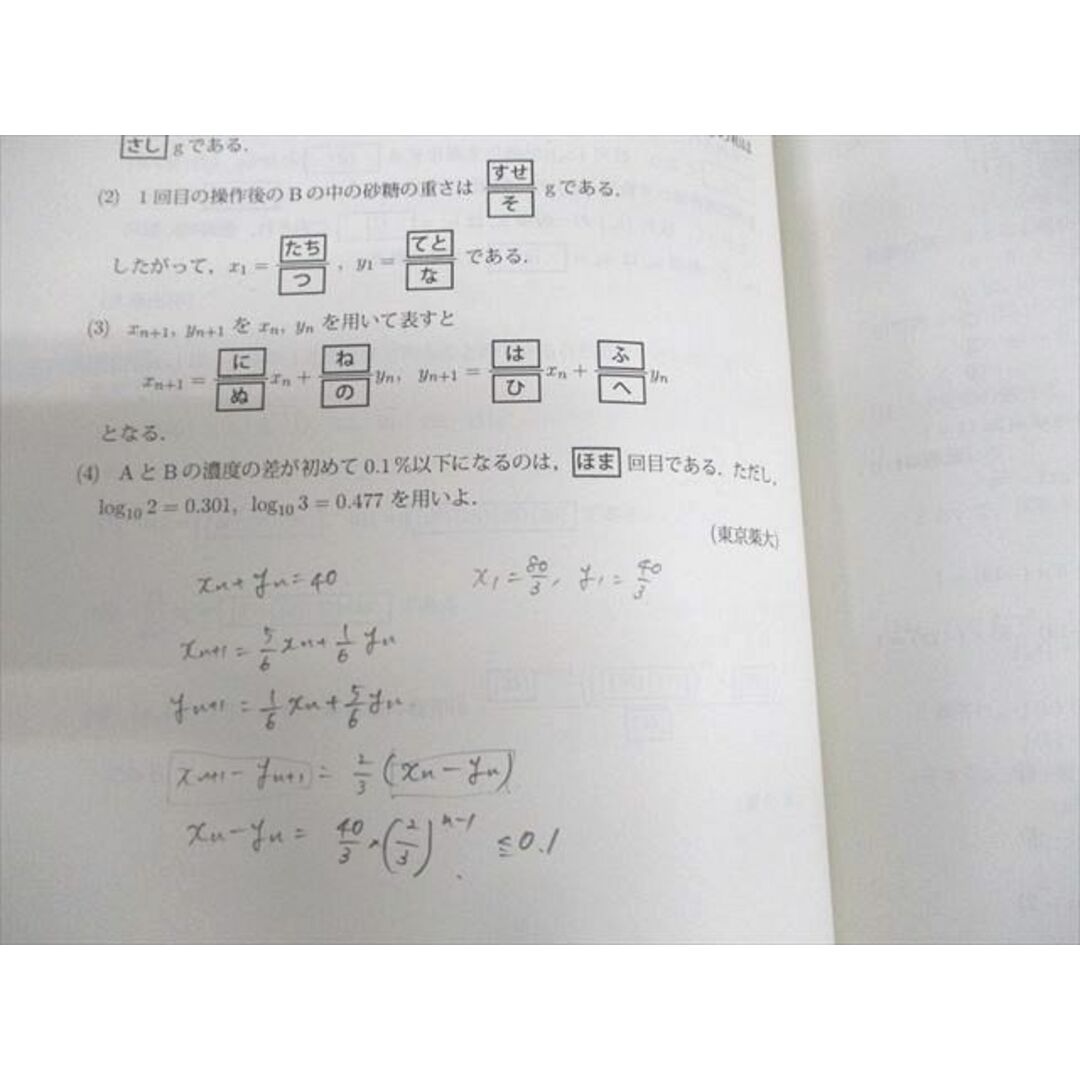 さし gである.
(2) 1回目の操作後のBの中の砂糖の重さは すせ/そ gである.
したがって, x₁ = たち/つ , y₁ = てと/な である.
(3) xₙ₊₁, yₙ₊₁ を xₙ, yₙ を用いて表すと
xₙ₊₁ = に/ぬ xₙ + ね/の yₙ, yₙ₊₁ = は/ひ xₙ + ふ/へ yₙ
となる.
(4) AとBの濃度の差が初めて0.1%以下になるのは, ほま 回目である. ただし,
log₁₀ 2 = 0.301, log₁₀ 3 = 0.477 を用いよ.
(東京薬大)
xₙ + yₙ = 40 x₁ = 80/3, y₁ = 40/3
xₙ₊₁ = 5/6 xₙ + 1/6 yₙ
yₙ₊₁ = 1/6 xₙ + 5/6 yₙ
xₙ₊₁ - yₙ₊₁ = 2/3 (xₙ - yₙ)
xₙ - yₙ = 40/3 × (2/3)ⁿ⁻¹ ≦ 0.1